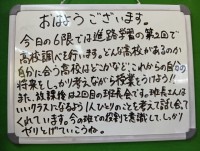 おはようございます。
今日の6限では進路学習の第2回で
高校調べを行います。どんな高校があるのか
自分に合う高校はどこかなど、これからの自分の
将来をしっかり考えながら授業をうけよう!!
また、放課後は2回目の班長会です。班長さんは
いいクラスになるよう1人ひとりのことを考えて話し合て
くれています。今の班での役割を意識して、しっかり
やりとげていこうね。